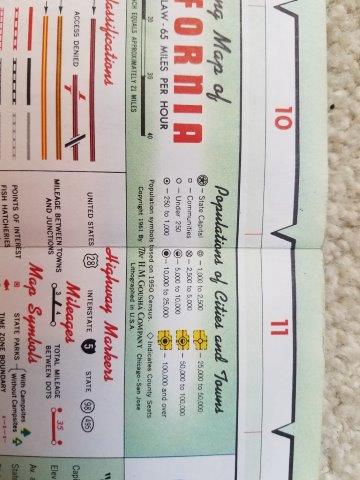 10
11
ng Map of
FORNIA
LAW - 65 MILES PER HOUR
20 30 40
NCH EQUALS APPROXIMATELY 21 MILES
Populations of Cities and Towns
- State Capital
- Communities
- Under 250
- 250 to 1,000
- 1,000 to 2,500
- 2,500 to 5,000
- 5,000 to 10,000
- 10,000 to 25,000
- 25,000 to 50,000
- 50,000 to 100,000
- 100,000 and over
Population symbols based on 1950 Census.
Indicates County Seats
Copyright 1961 By The H.M. GOUSHA COMPANY Chicago - San Jose
Lithographed in U.S.A.
lassifications
ACCESS DENIED
Highway Markers
UNITED STATES 28 INTERSTATE 5 STATE 98 495
Mileages
MILEAGE BETWEEN TOWNS
AND JUNCTIONS
3 4
TOTAL MILEAGE
BETWEEN DOTS
35
Map Symbols
POINTS OF INTEREST
FISH HATCHERIES
STATE PARKS
With Campsites
Without Campsites
TIME ZONE BOUNDARY